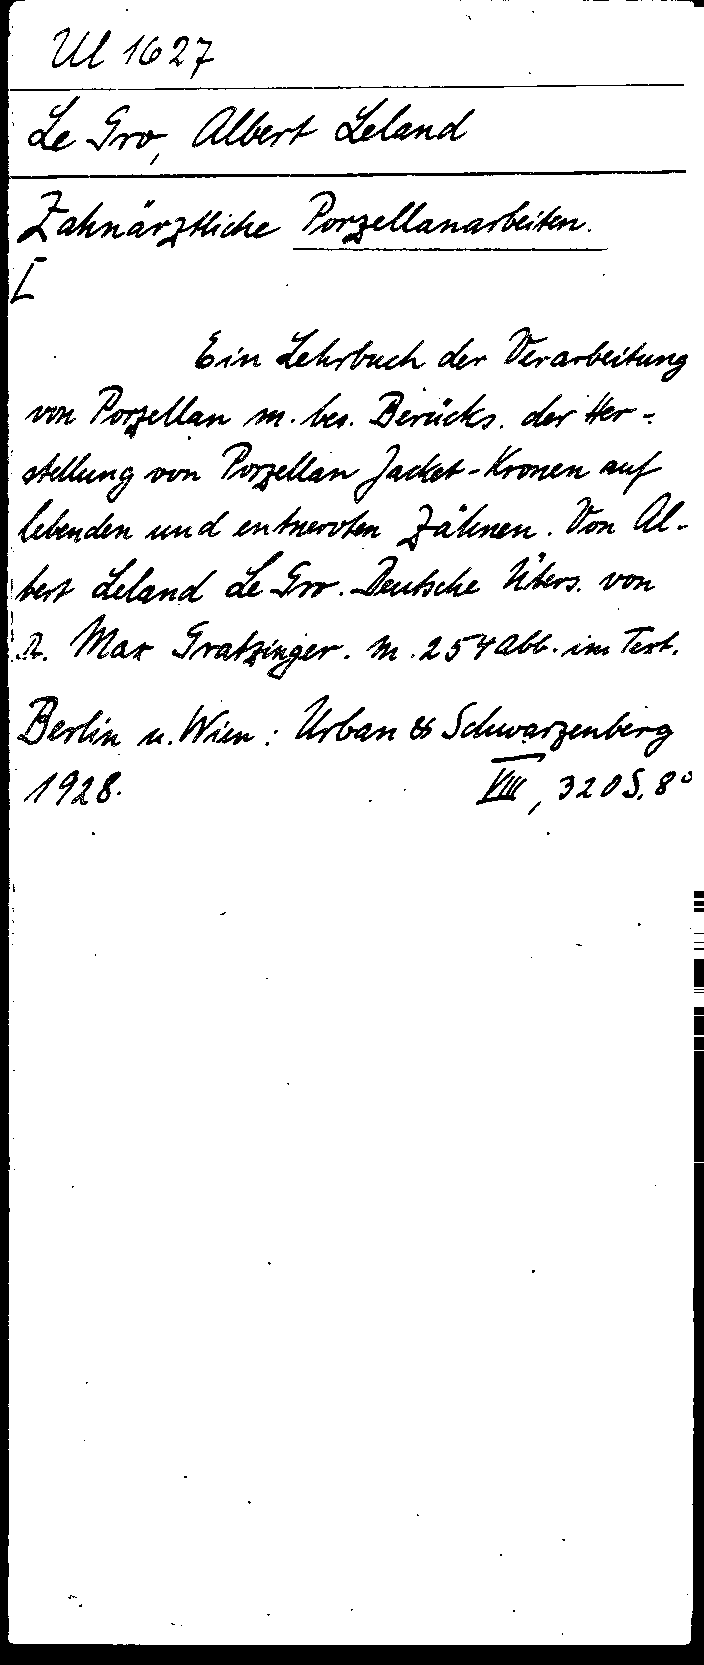 Ul 1627
Le Gro, Albert Leland
Zahnärztliche Porzellanarbeiten.
[
Ein Lehrbuch der Verarbeitung
von Porzellan m. bes. Berücks. der Her-
stellung von Porzellan Jacket-Kronen auf
lebenden und entnervten Zähnen. Von Al-
bert Leland Le Gro. Deutsche Übers. von
R. Max Gratzinger. M. 254 Abb. im Text.
Berlin u. Wien: Urban & Schwarzenberg
1928. VIII, 320 S. 8°